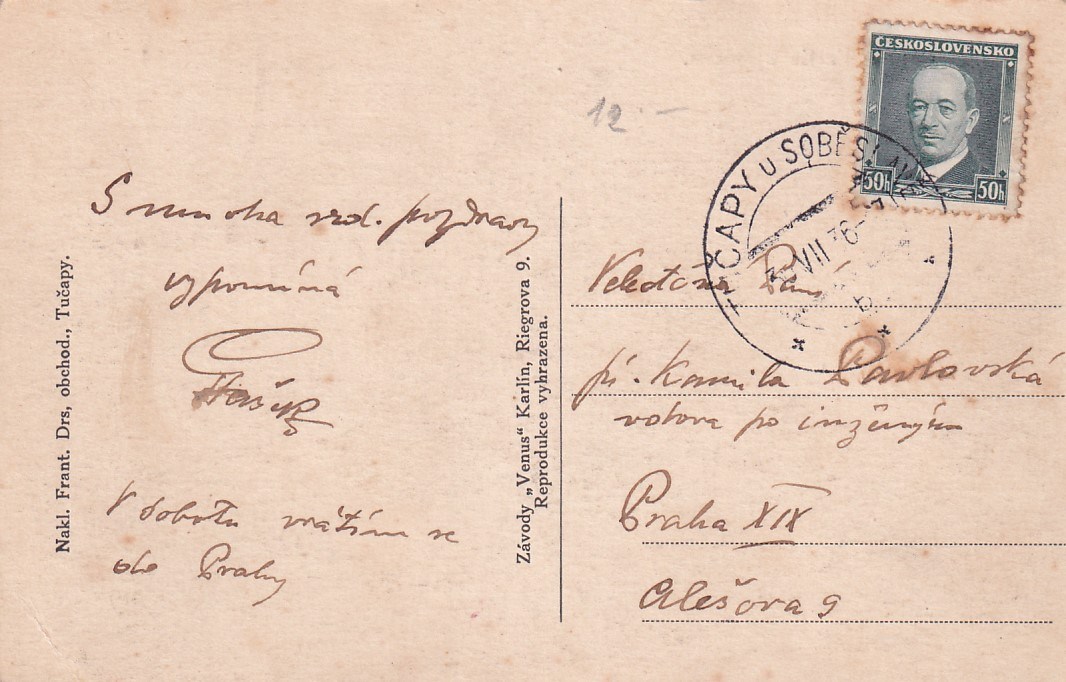 ČESKOSLOVENSKO
50h 50h
TUČAPY U SOBĚSLAVĚ
VII 36
12.—
S mnoha srd. pozdravy
vzpomíná
V sobotu vrátím se
do Prahy
Nakl. Frant. Drs, obchod., Tučapy.
Závody „Venus“ Karlín, Riegrova 9.
Reprodukce vyhrazena.
Velectěná Paní
pí. Kamila Pavlovská
vdova po inženýru
Praha XIX
Alešova 9